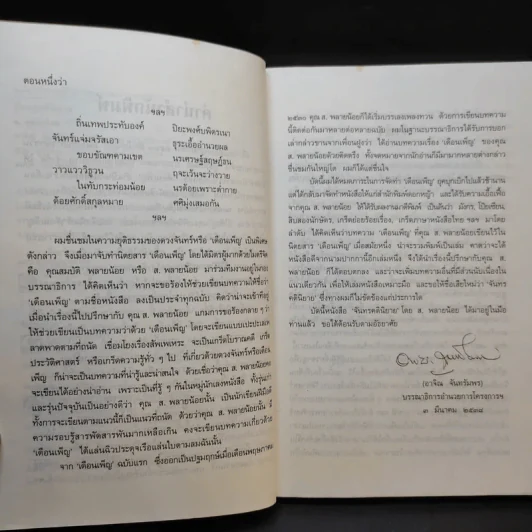 ตอนหนึ่งว่า
ฯลฯ
ถิ่นเทพประทับองค์ ปิยะพงศ์บพิตรเนา
จันทร์แจ่มจรัสเอา ธุระเอื้ออำนวยผล
ขอบขัณฑคามเขต นรเศรษฐ์สฤษฎ์ธน
วาวแวววิฐวน ฤจะเว้นจะว่างวาย
ในทับกระท่อมน้อย นรด้อยเพราะต่ำกาย
ด้อยศักดิ์สกุลหมาย คติมุ่งเสมอกัน
ฯลฯ
ผมชื่นชมในความยุติธรรมของดวงจันทร์หรือ 'เดือนเพ็ญ' เป็นพิเศษ
ดังกล่าว จึงเมื่อมาจับทำนิตยสาร 'เดือนเพ็ญ' โดยได้มิตรผู้มากด้วยไมตรีจิต
คือ คุณสมบัติ พลายน้อย หรือ ส. พลายน้อย มาร่วมทีมงานอยู่ในกอง
บรรณาธิการ ได้คิดเห็นว่า หากจะขอร้องให้ช่วยเขียนบทความให้ชื่อว่า
'เดือนเพ็ญ' ตามชื่อหนังสือ ลงเป็นประจำทุกฉบับ คิดว่าน่าจะเข้าทีอยู่
เมื่อนำเรื่องนี้ไปปรึกษากับ คุณ ส. พลายน้อย แกมการขอร้องกลาย ๆ ว่า
ให้ช่วยเขียนเป็นบทความว่าด้วย 'เดือนเพ็ญ' โดยจะเขียนแบบเปะปะเฉพาะ
ลาดพาดตามที่ถนัด เชื่อมโยงเรื่องสัพเพเหระ จะเป็นเกร็ดโบราณคดี เกร็ด
ประวัติศาสตร์ หรือเกร็ดความรู้ทั่ว ๆ ไป ที่เกี่ยวด้วยดวงจันทร์หรือเดือน
เพ็ญ ก็น่าจะเป็นบทความที่น่ารู้และน่าสนใจ ด้วยเชื่อว่าคุณ ส. พลายน้อย
จะเขียนได้อย่างน่าอ่าน เพราะเป็นที่รู้ ๆ กันในหมู่นักเลงหนังสือ ทั้งรุ่นเก่า
และรุ่นปัจจุบันเป็นอย่างดีว่า คุณ ส. พลายน้อยนั้น เป็นนักเขียนที่มีฝีมือ
ทั้งการจะเขียนตามแนวนี้ก็เป็นแนวที่ถนัด ด้วยว่าคุณ ส. พลายน้อยนั้น มี
ความรอบรู้สารพัดสารพันมากเหลือเกิน คงจะเขียนบทความเกี่ยวด้วย
'เดือนเพ็ญ' ได้แล่นฉิวประดุจเรือแล่นใบตามลมฉันนั้น
จาก 'เดือนเพ็ญ' ฉบับแรก ซึ่งออกเป็นปฐมฤกษ์เมื่อเดือนพฤษภาคม
๒๕๒๐ คุณ ส. พลายน้อยก็ได้เริ่มบรรเลงเพลงหวาน ด้วยการเขียนบทความ
นี้ติดต่อกันมาหลายต่อหลายฉบับ ผมในฐานะบรรณาธิการได้รับการบอก
เล่ากล่าวขานจากเพื่อนฝูงว่า ได้อ่านบทความเรื่อง 'เดือนเพ็ญ' ของคุณ
ส. พลายน้อยด้วยติดตรึง ทั้งจดหมายจากนักอ่านก็มีมามากหลายต่างกล่าว
ชื่นชมกันใหญ่โต ผมก็ได้แต่ชื่นใจ
บัดนี้ผมได้หมดภาระในการจัดทำ 'เดือนเพ็ญ' ยุคบุกเบิกไปแล้วช้านาน
แต่ได้กลับมาจัดทำหนังสือให้แก่สำนักพิมพ์ดอกหญ้า และได้รับความเอื้อเฟื้อ
จากคุณ ส. พลายน้อย ให้ได้รับลงงานมาตีพิมพ์ เป็นต้นว่า มังกร, ไปเยือน,
สิบสองนักษัตร, เกร็ดย่อยร้อยเรื่อง, เกร็ดภาษาหนังสือไทย ฯลฯ มาโดย
ลำดับ ได้คิดเห็นว่าบทความ 'เดือนเพ็ญ' ที่คุณ ส. พลายน้อยเขียนไว้ใน
นิตยสาร 'เดือนเพ็ญ' เมื่อสมัยหนึ่ง น่าจะรวมพิมพ์เป็นเล่ม คาดว่าจะได้
หนังสือดีจากนามปากกานี้อีกเล่มหนึ่ง จึงได้นำเรื่องนี้ปรึกษากับคุณ ส.
พลายน้อย ก็ได้ตอบตกลง และว่าจะเพิ่มบทความอื่นที่มีส่วนนับเนื่องใน
แนวเดียวกัน เพื่อให้เล่มหนังสือเหมาะเหม็ง และขอให้ชื่อเสียใหม่ว่า 'จันทร
คตินิยาย' ซึ่งทางผมก็ไม่ขัดข้องแต่ประการใด
บัดนี้หนังสือ 'จันทรคตินิยาย' โดย ส. พลายน้อย ได้มาอยู่ในมือ
ท่านแล้ว ขอได้ต้อนรับตามอัธยาศัย
(อาจิณ จันทรัมพร)
บรรณาธิการอำนวยการโครงการฯ
๓ มีนาคม ๒๕๓๘